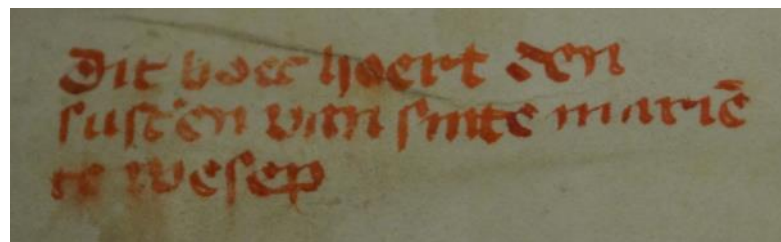 Dit boec hoert den
sust'en van sinte mariē
te wesep